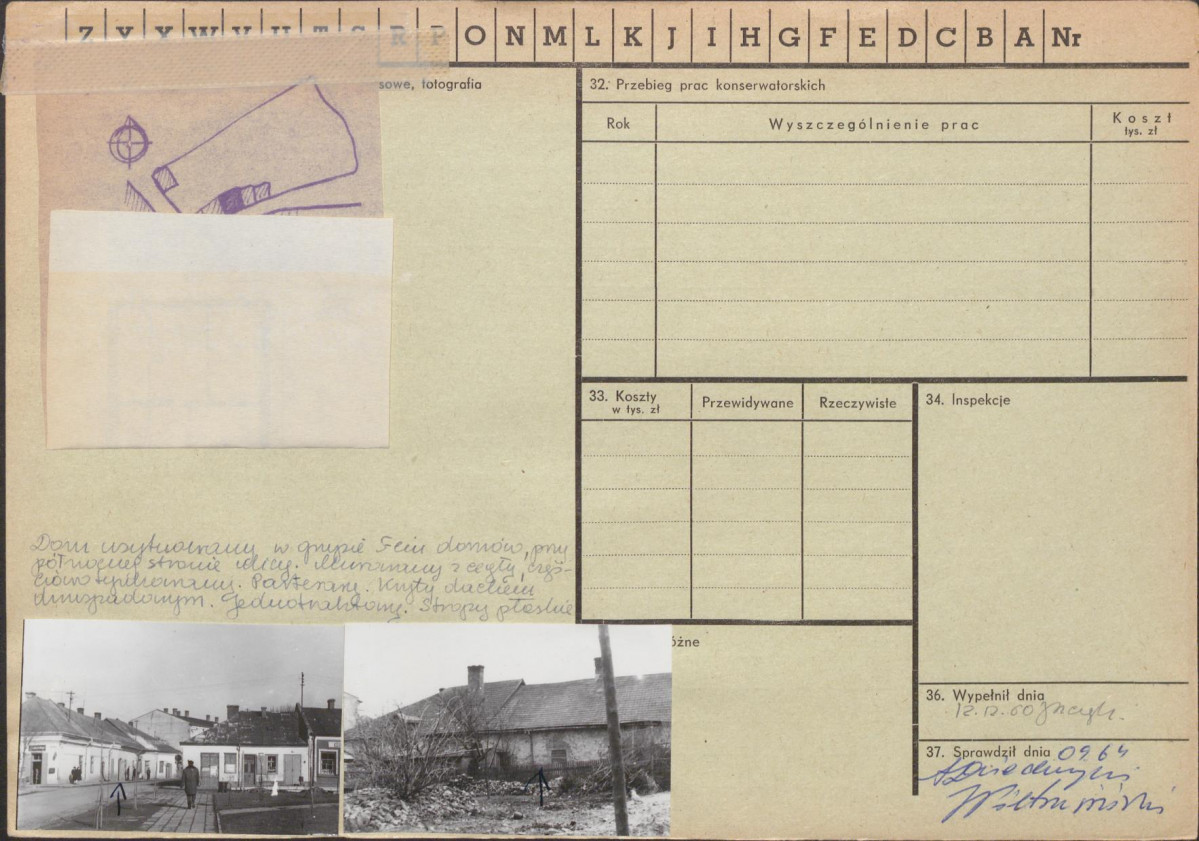 Z Y X W V U T S R P O N M L K J I H G F E D C B A Nr
sowe, fotografia
32. Przebieg prac konserwatorskich
Rok
Wyszczególnienie prac
Koszt
tys. zł
33. Koszty
w tys. zł
Przewidywane
Rzeczywiste
34. Inspekcje
Dom usytuowany w grupie 7-miu domów, przy
północnej stronie ulicy. Murowany z cegły, częś-
ciowo tynkowany. Parterowy. Kryty dachem
dwuspadowym. Jednotraktowy. Stropy płaskie
óżne
36. Wypełnił dnia
12.IX.60
37. Sprawdził dnia 09.64